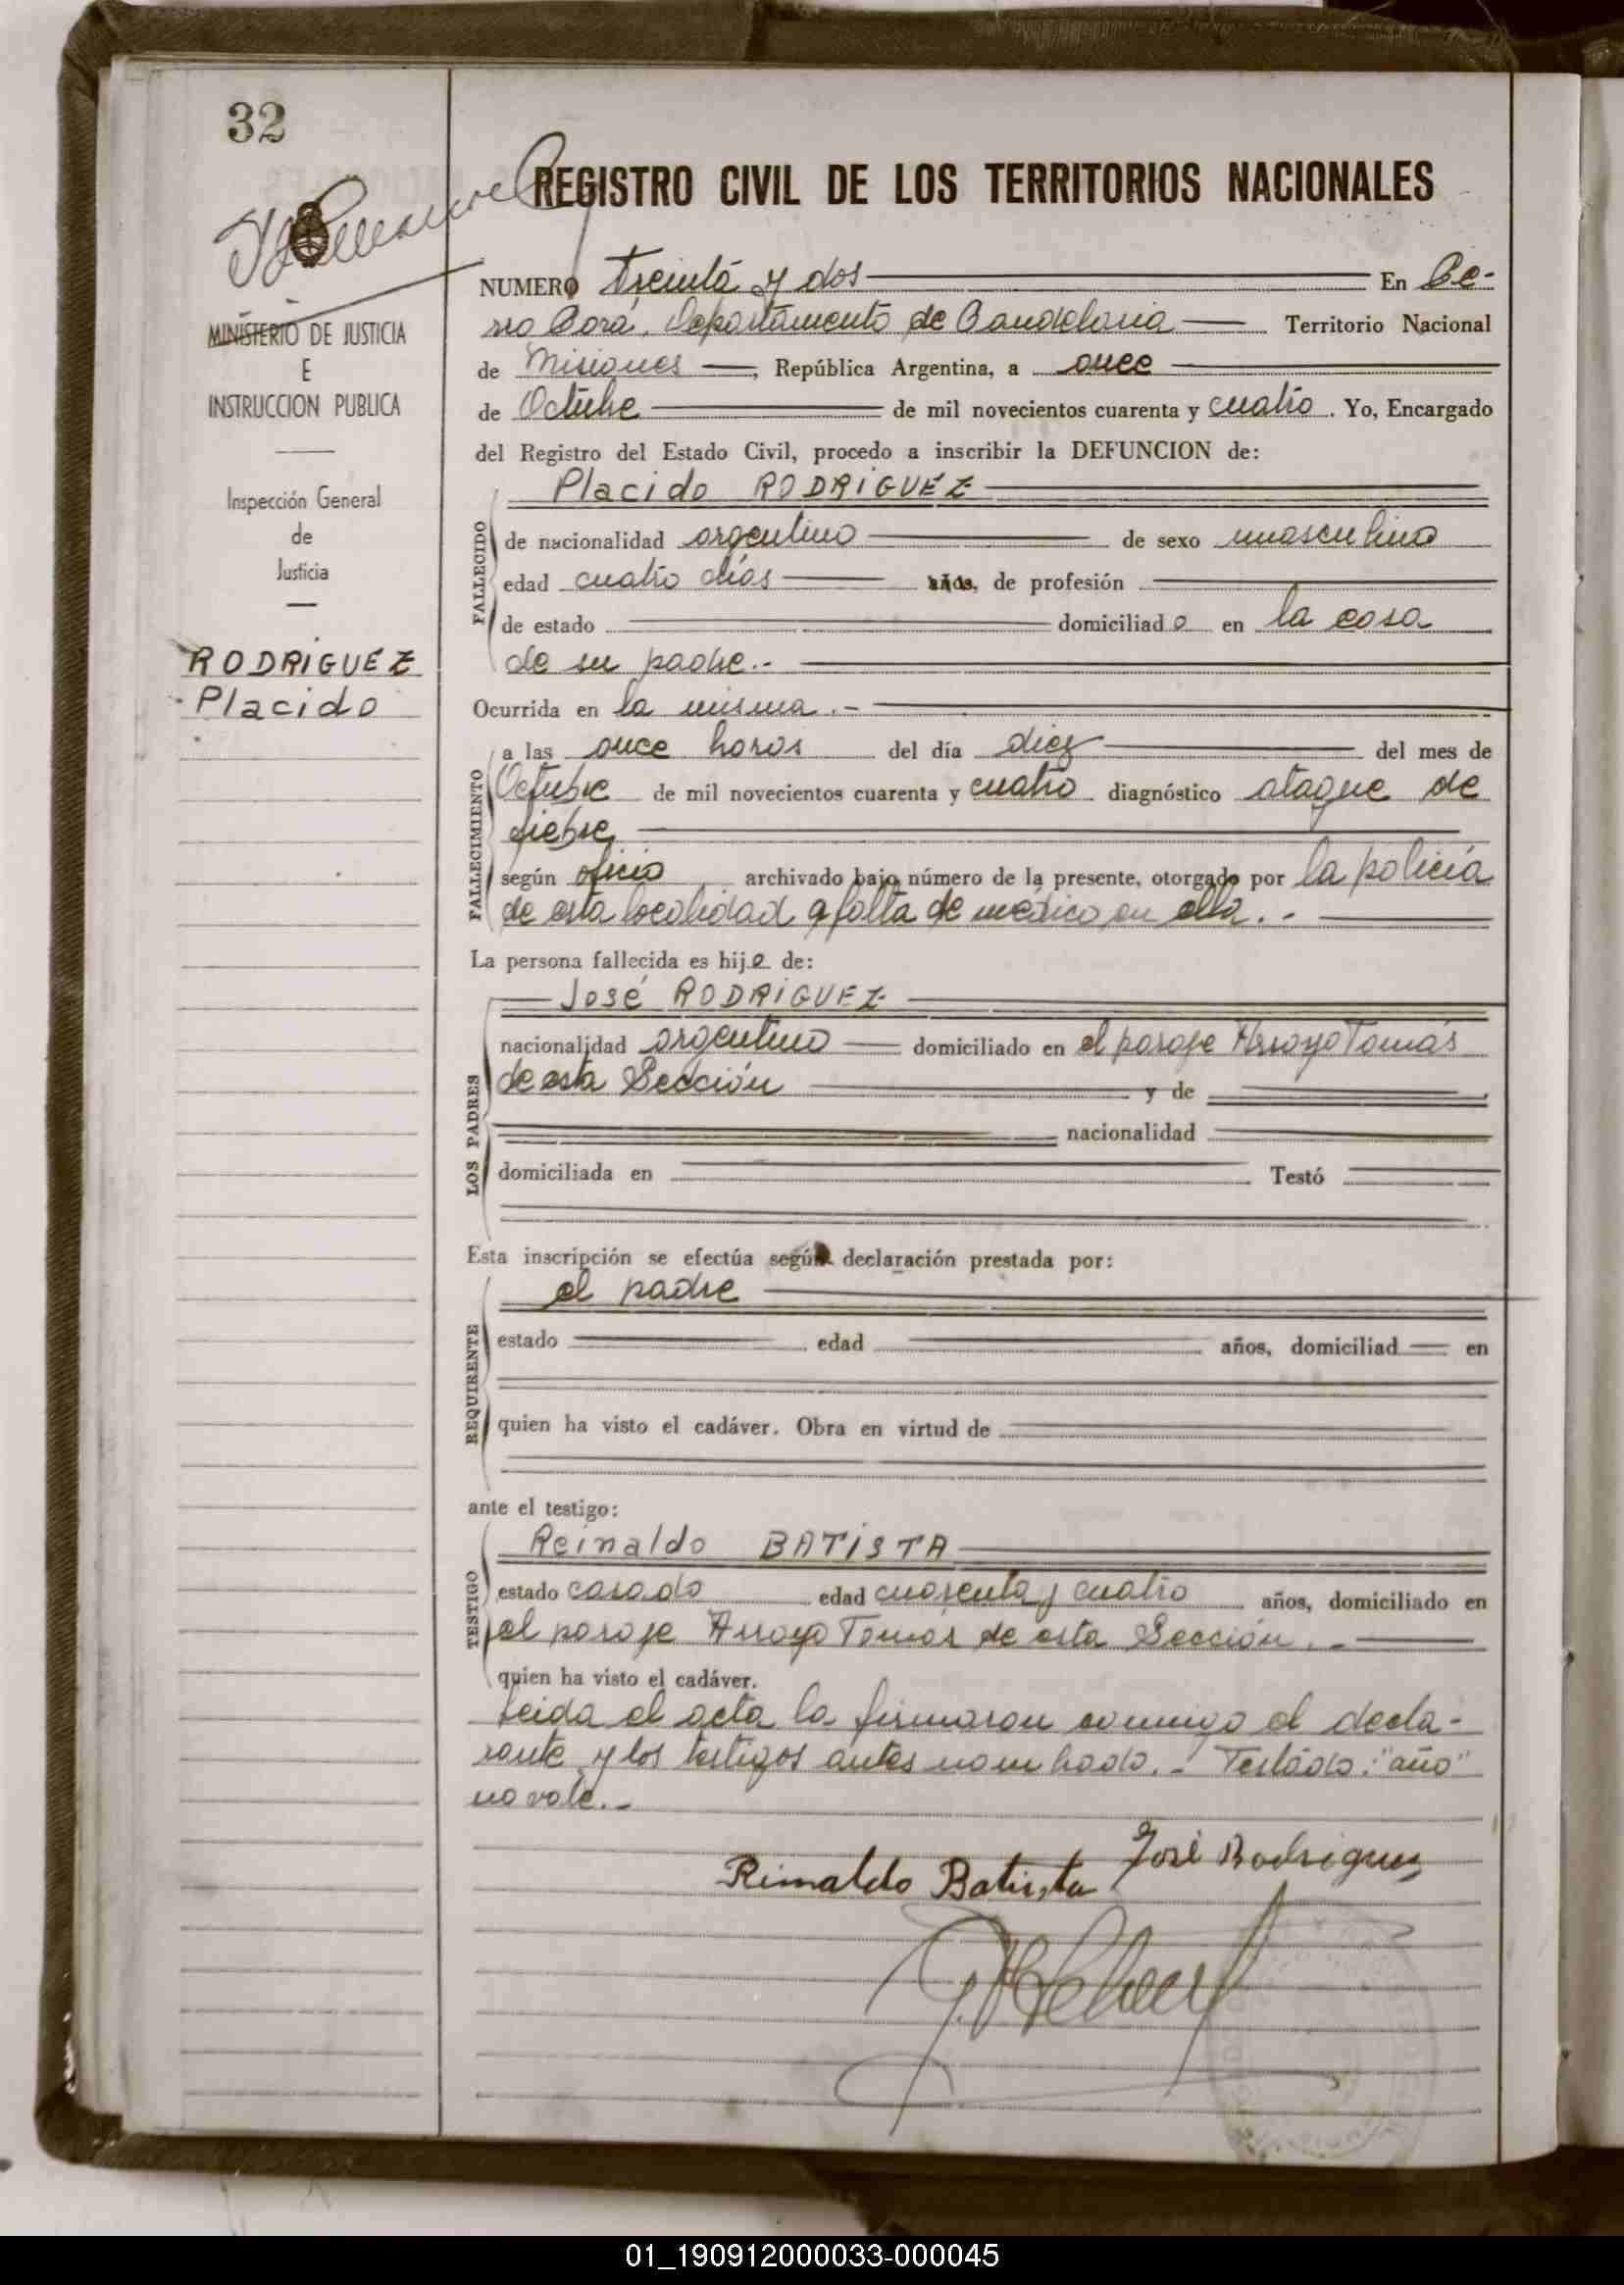 32
REGISTRO CIVIL DE LOS TERRITORIOS NACIONALES
NUMERO Treinta y dos En Ce-
rro Corá, Departamento de Candelaria Territorio Nacional
de Misiones, República Argentina, a once
de Octubre de mil novecientos cuarenta y cuatro. Yo, Encargado
del Registro del Estado Civil, procedo a inscribir la DEFUNCION de:
Placido RODRIGUEZ
FALLECIDO
de nacionalidad argentino de sexo masculino
edad cuatro días años, de profesión
de estado domiciliado en la casa
de su padre.-
Ocurrida en la misma.-
FALLECIMIENTO
a las once horas del día diez del mes de
Octubre de mil novecientos cuarenta y cuatro diagnóstico ataque de
fiebre
según oficio archivado bajo número de la presente, otorgado por la policía
de esta localidad a falta de médico en ella.-
La persona fallecida es hijo de:
José RODRIGUEZ
LOS PADRES
nacionalidad argentino domiciliado en el paraje Arroyo Tomás
de esta Sección y de
nacionalidad
domiciliada en Testó
Esta inscripción se efectúa según declaración prestada por:
el padre
REQUIRENTE
estado edad años, domiciliad en
quien ha visto el cadáver. Obra en virtud de
ante el testigo:
Reinaldo BATISTA
TESTIGO
estado casado edad cuarenta y cuatro años, domiciliado en
el paraje Arroyo Tomás de esta Sección.-
quien ha visto el cadáver.
Leida el acta la firmaron conmigo el decla-
rante y los testigos antes nombrado.- Testado: "año"
no vale.-
Rimaldo Batista José Rodriguez
MINISTERIO DE JUSTICIA
E
INSTRUCCION PUBLICA
Inspección General
de
Justicia
RODRIGUEZ
Placido
01_190912000033-000045